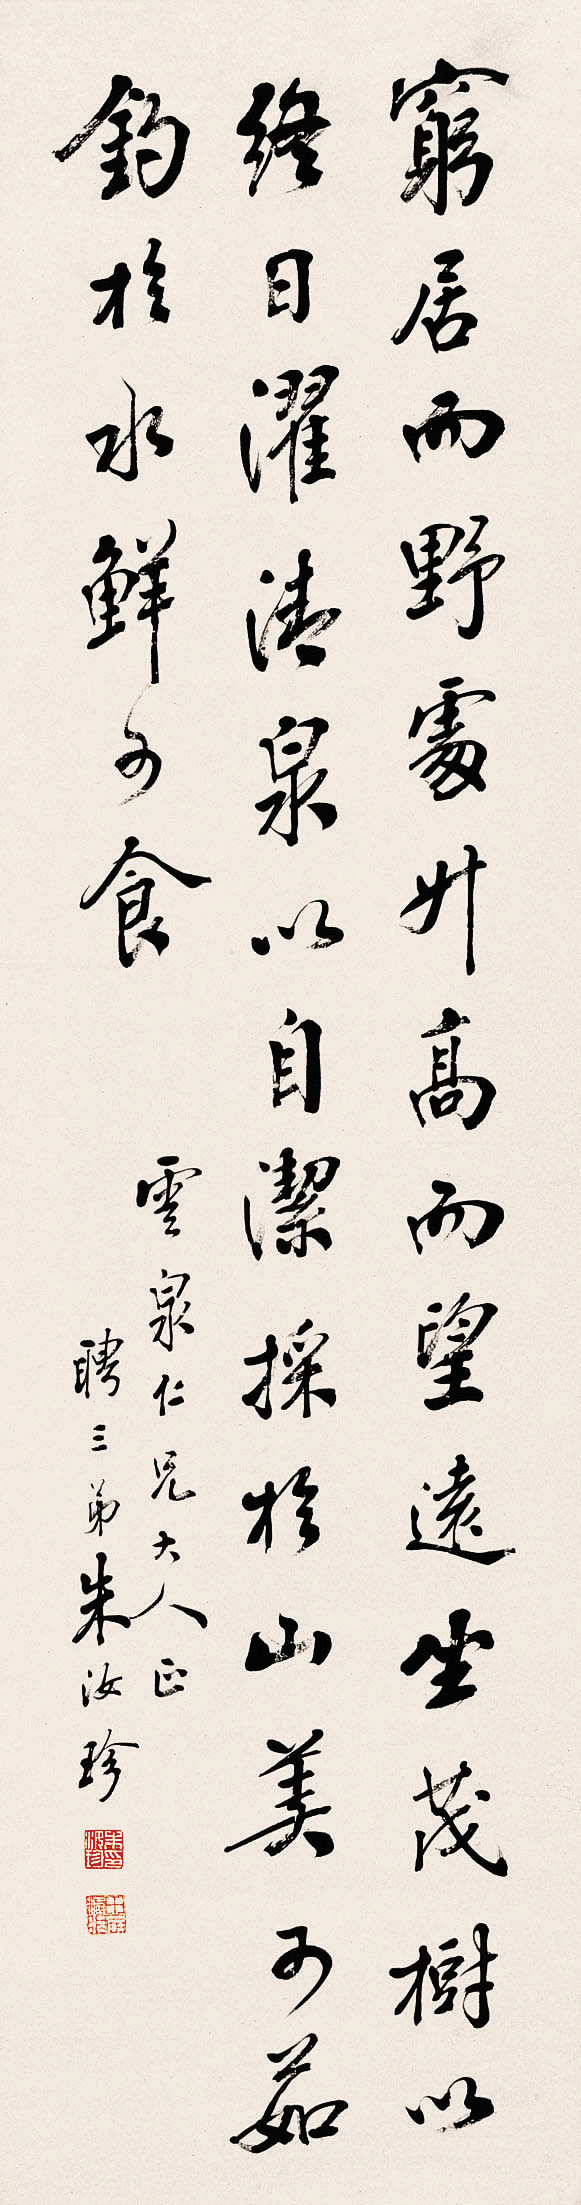 窮居而野處升高而望遠坐茂樹以
終日濯清泉以自潔採於山美可茹
釣於水鮮可食
雲泉仁兄大人正
聘三弟朱汝珍
朱汝珍印